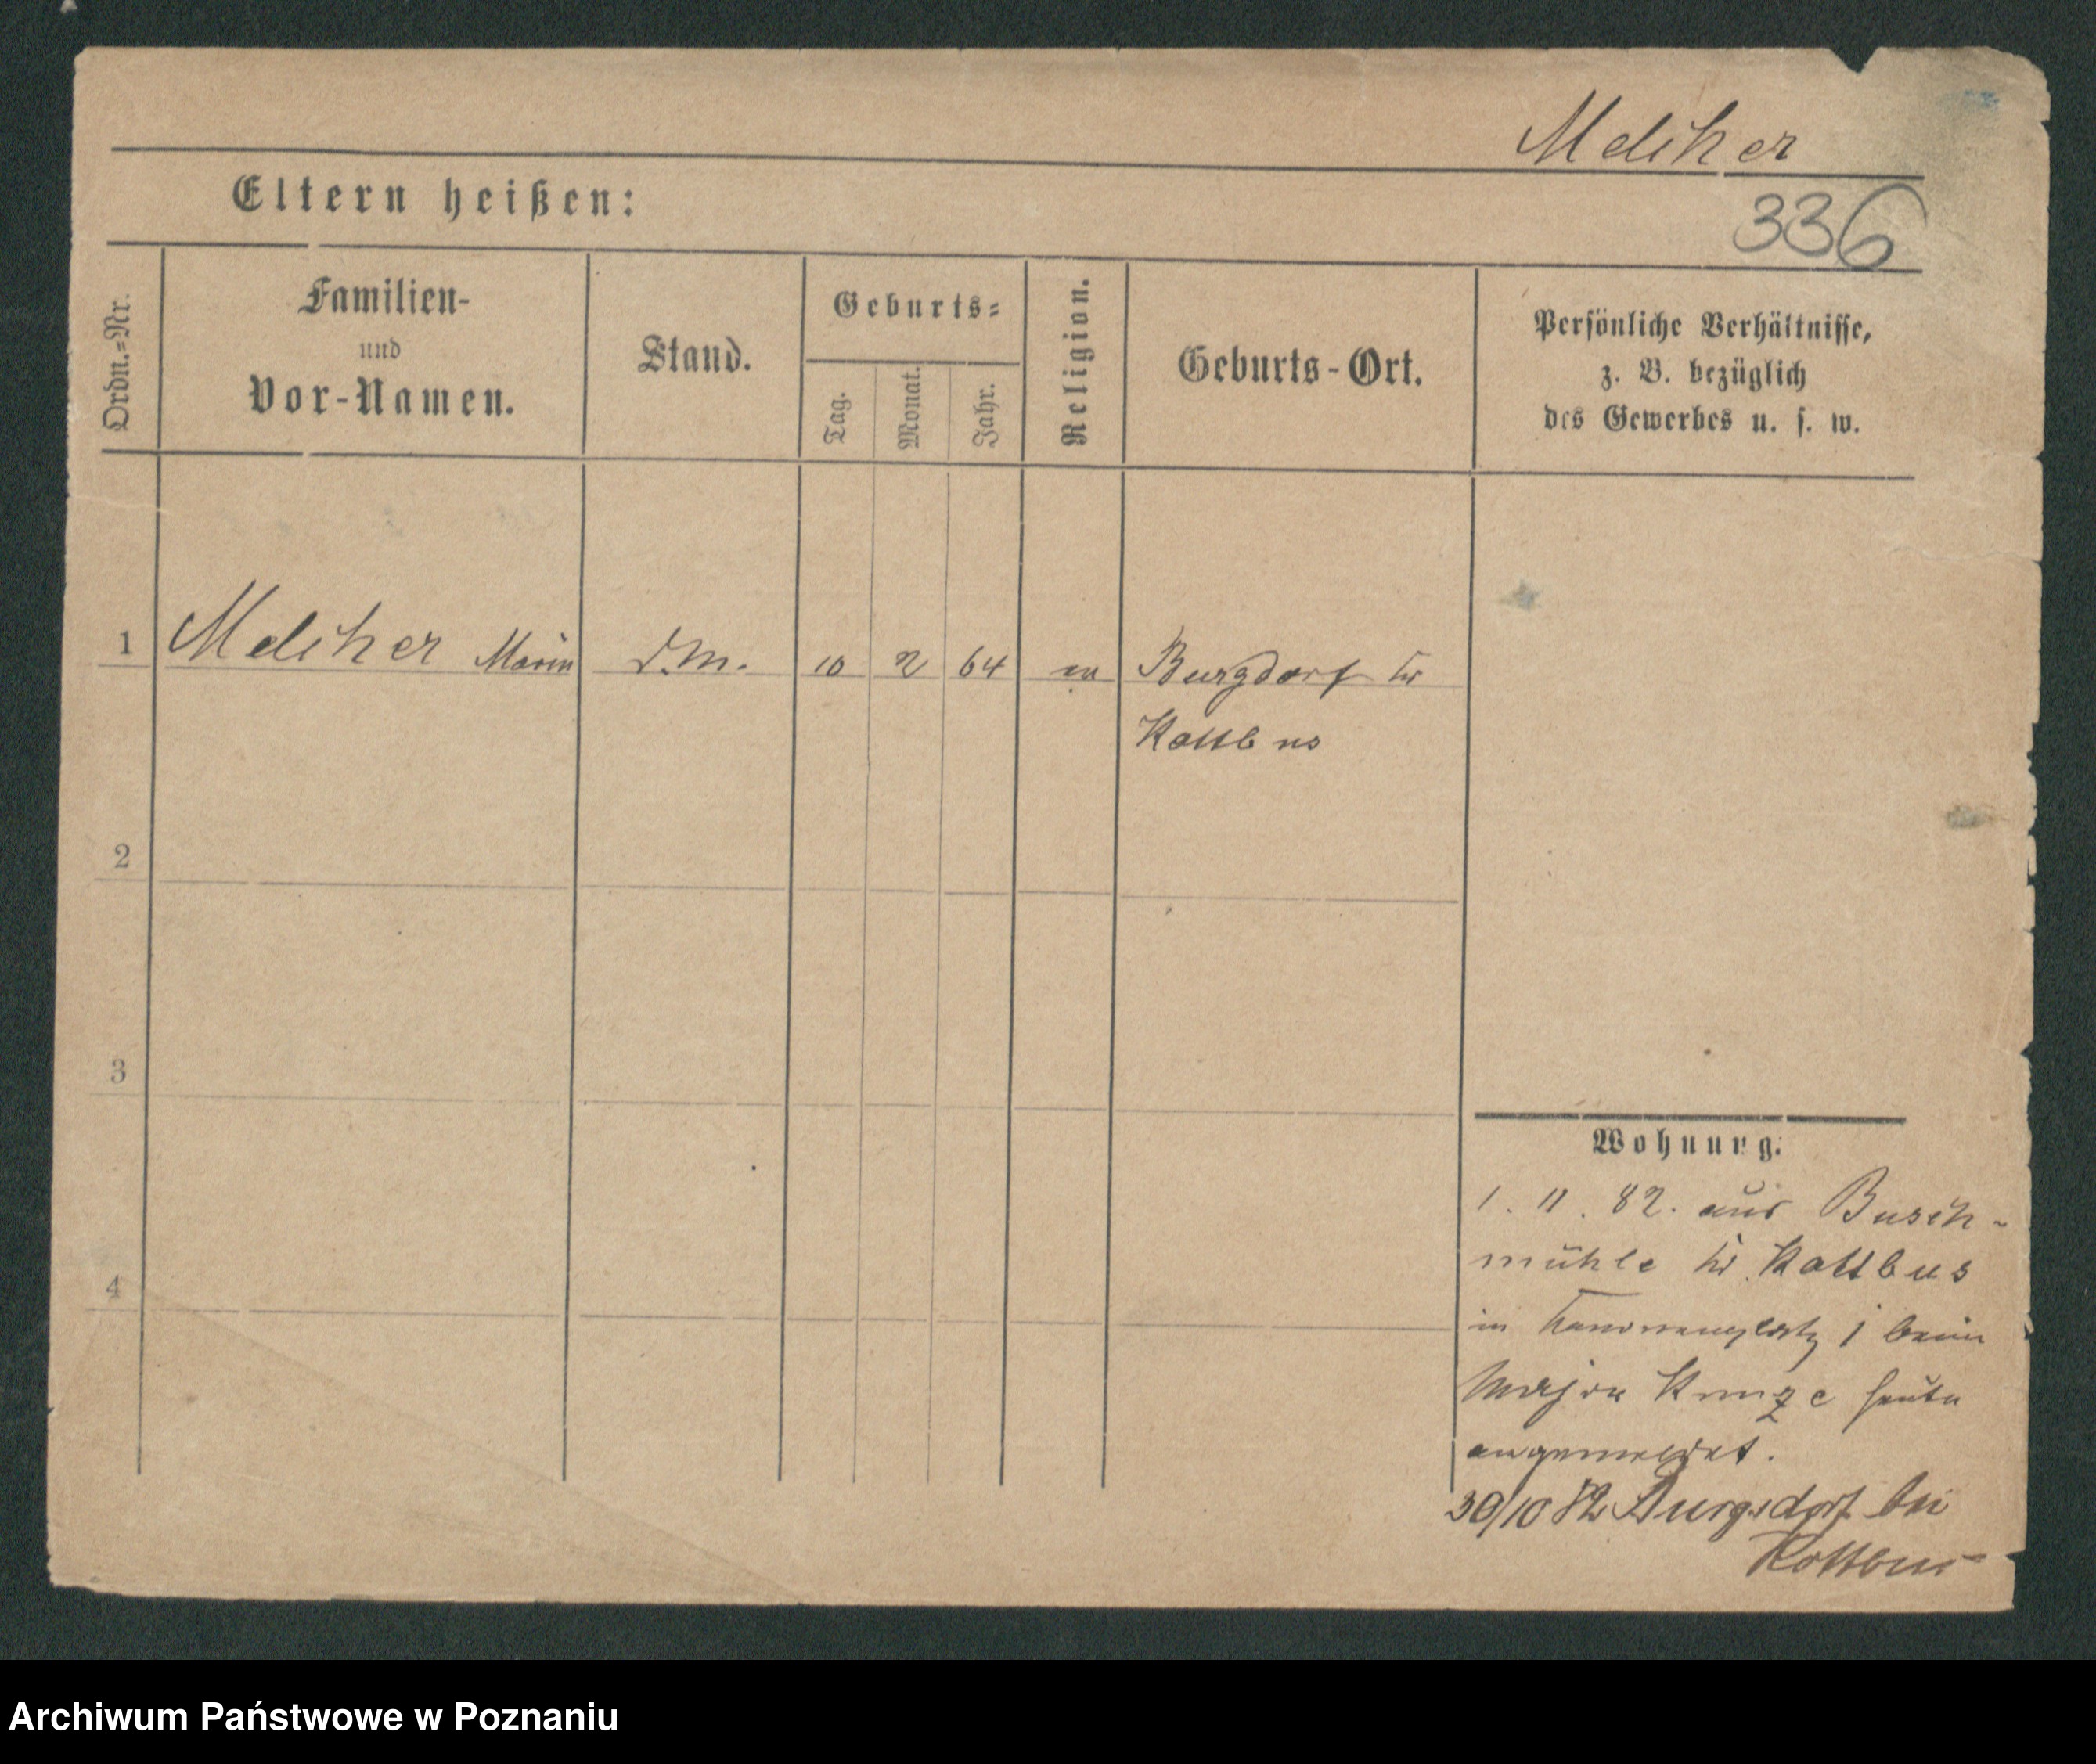 Melcher
Eltern heißen:
336
Ordn.=Nr.
Familien-
und
Vor-Namen.
Stand.
Geburts=
Tag.
Monat.
Jahr.
Religion.
Geburts-Ort.
Persönliche Verhältnisse,
z. B. bezüglich
des Gewerbes u. s. w.
1 Melcher Marie D.M. 10 2 64 ev Burgdorf Kr
Kottbus
2
3
4
Wohnung.
1. 11. 82. aus Busch-
mühle Kr. Kottbus
in Kanonenplatz 1 beim
Major Kunze heute
angemeldet.
30/10 82 Burgsdorf bei
Kottbus
Archiwum Państwowe w Poznaniu